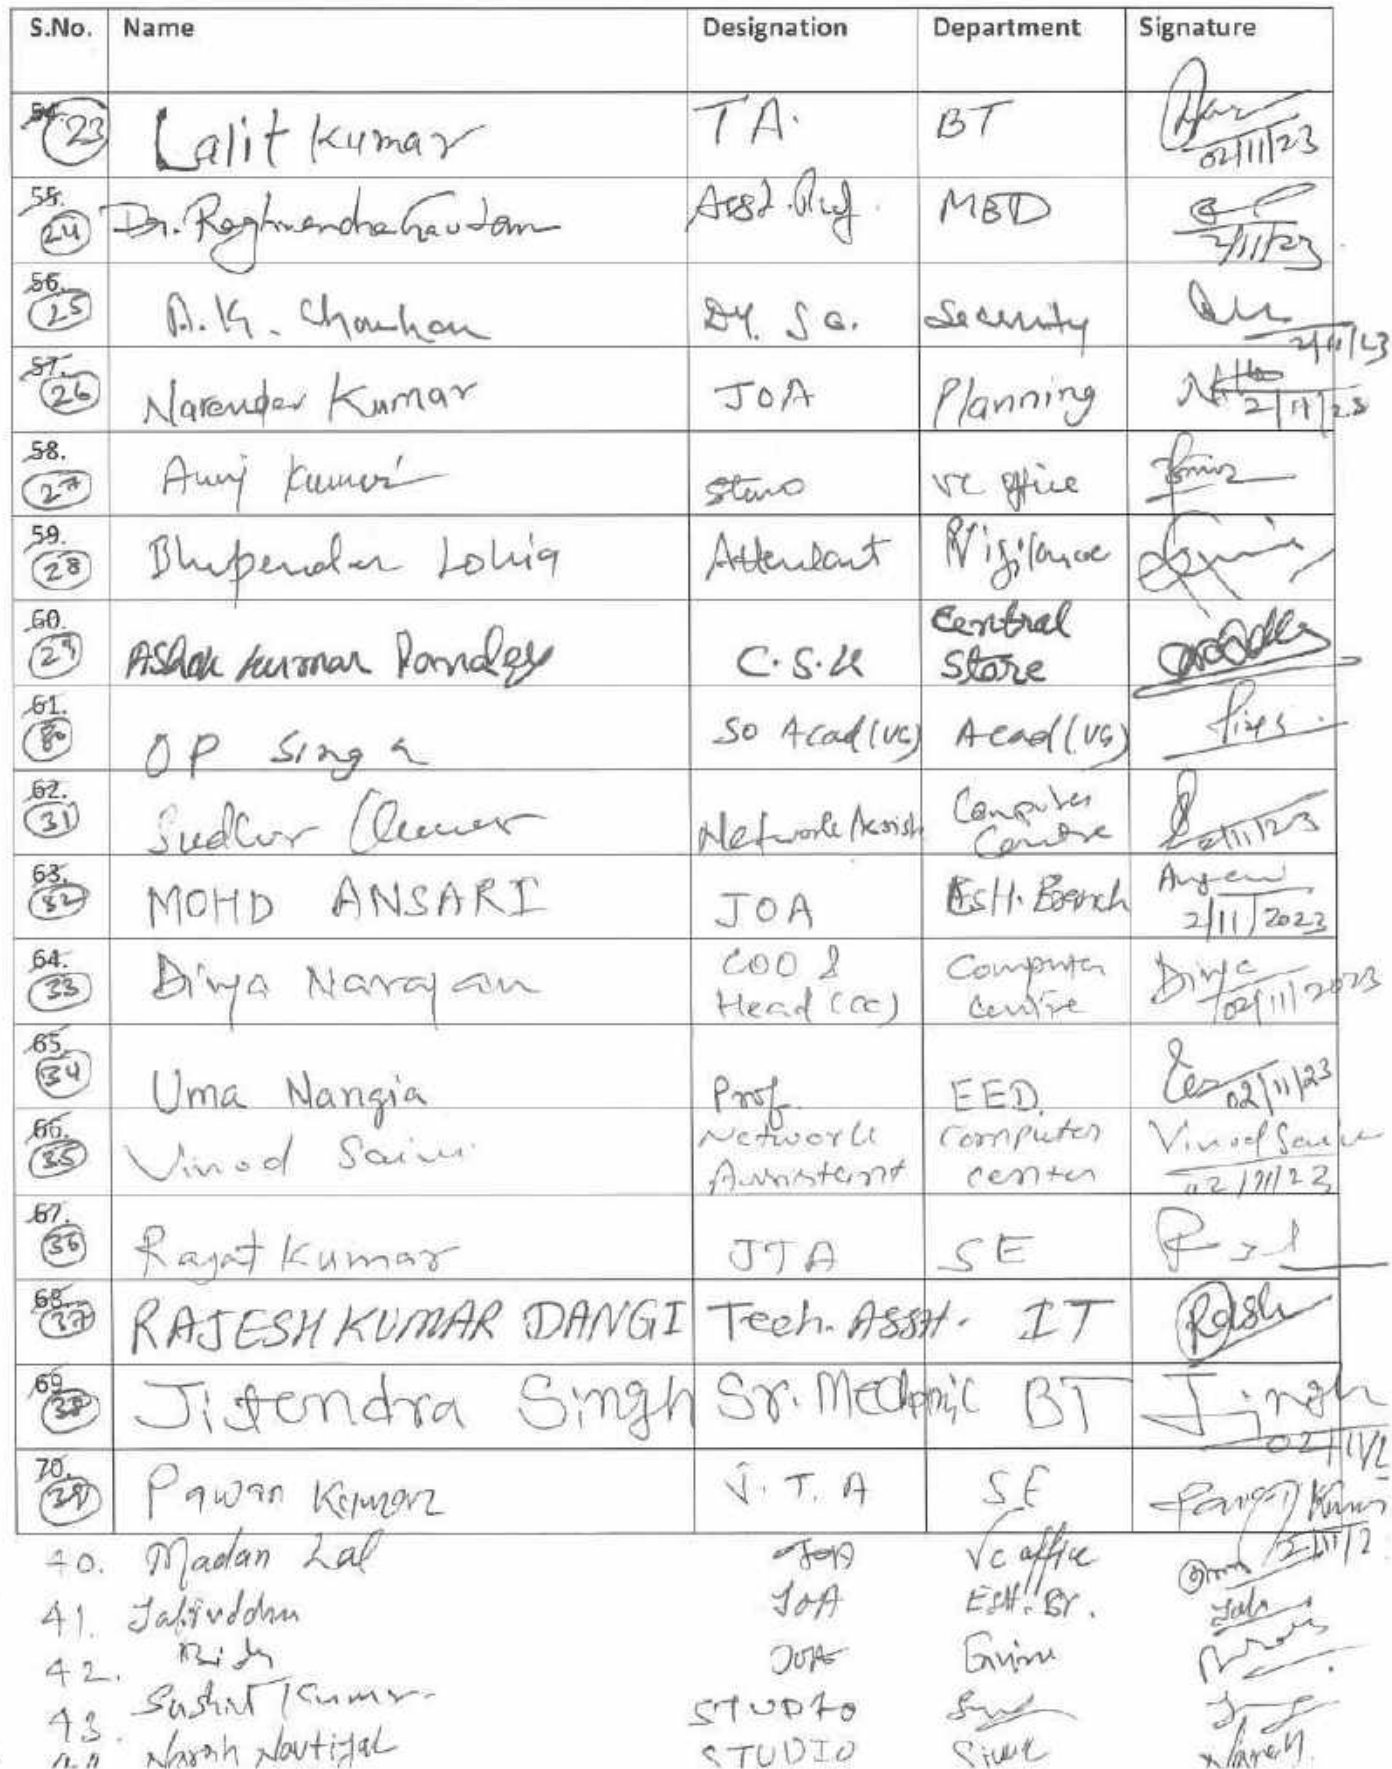 S.No. Name Designation Department Signature
54. 23 Lalit Kumar TA. BT 02/11/23
55. 24 Dr. Raghvendra Gautam Asst. Prof. MED 2/11/23
56. 25 A.K. Chauhan Dy. So. Security 2/11/23
57. 26 Narender Kumar JOA Planning 2/11/23
58. 27 Anuj Kumar Steno VC office
59. 28 Bhupender Lohia Attendant Vigilance
60. 29 Ashok Kumar Pandey C.S.K Central
Store
61. 30 OP Singh SO Acad(UG) Acad(UG)
62. 31 Network Assist Computer
Centre 2/11/23
63. 32 MOHD ANSARI JOA Estt. Branch 2/11/2023
64. 33 Divya Narayan COO &
Head (CC) Computer
Centre Divya 02/11/2023
65. 34 Uma Nangia Prof. EED. 02/11/23
66. 35 Vinod Saini Network
Assistant Computer
Center Vinod Saini
02/11/23
67. 36 Rajat Kumar JTA SE
68. 37 RAJESH KUMAR DANGI Tech. Asstt. IT
69. 38 Jitendra Singh Sr. Mechanic BT
70. 39 Pawan Kumar J.T.A SE Pawan Kumar
40. Madan Lal JOA VC office
41. JOA Estt. Br.
42. JOA
43. Sushil Kumar STUDIO
Naresh Nautiyal STUDIO Naresh